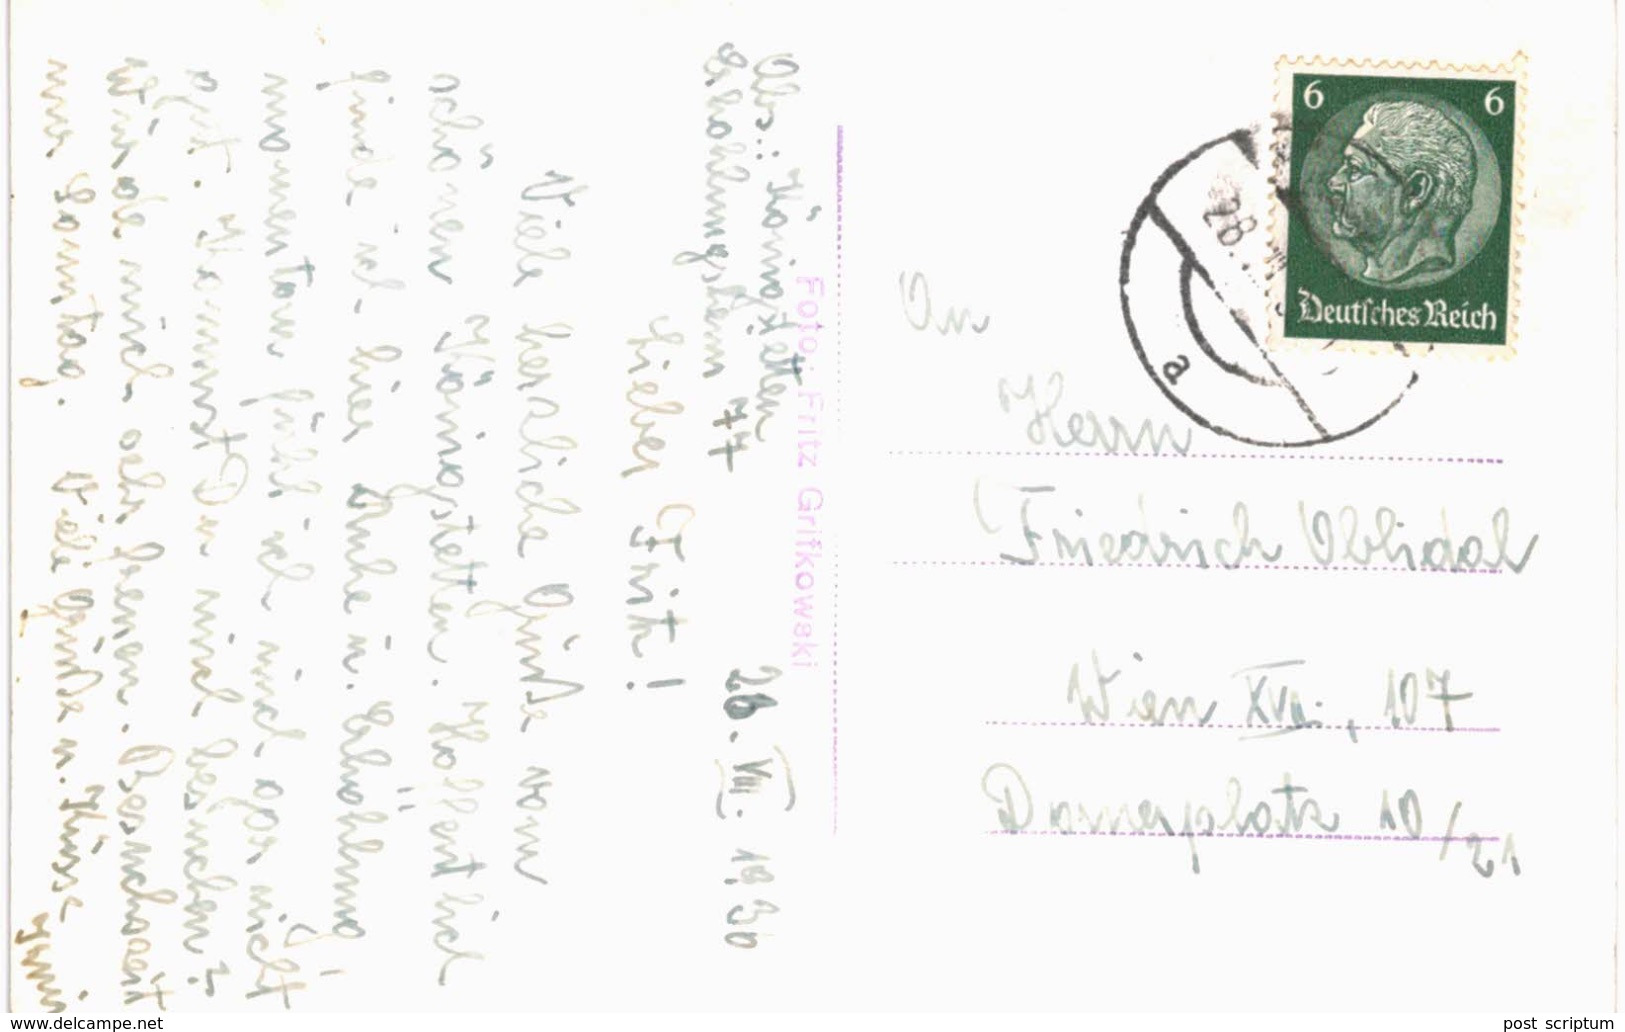 Abs.: Königstetten
Erholungsheim 77
28. VIII. 1939
Lieber Fritz!
Viele herzliche Grüße vom
schönen Königstetten. Hoffentlich
finde ich hier Ruhe u. Erholung!
momentan fühl ich mich gar nicht
gut. Kommst Du mich besuchen?
Würde mich sehr freuen. Besuchszeit
nur Sonntag. Viele Grüße u. Küsse
Foto: Fritz Grifkowski
6 6
Deutsches Reich
28.
a
An
Herrn
Friedrich Oblidal
Wien XVII., 107
Dornerplatz 10/21
www.delcampe.net
post scriptum